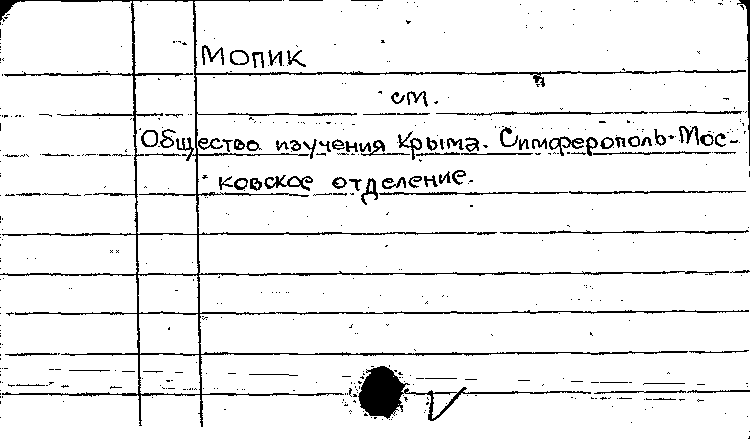 МОПИК
см.
Общество изучения Крыма. Симферополь. Мос-
ковское отделение.